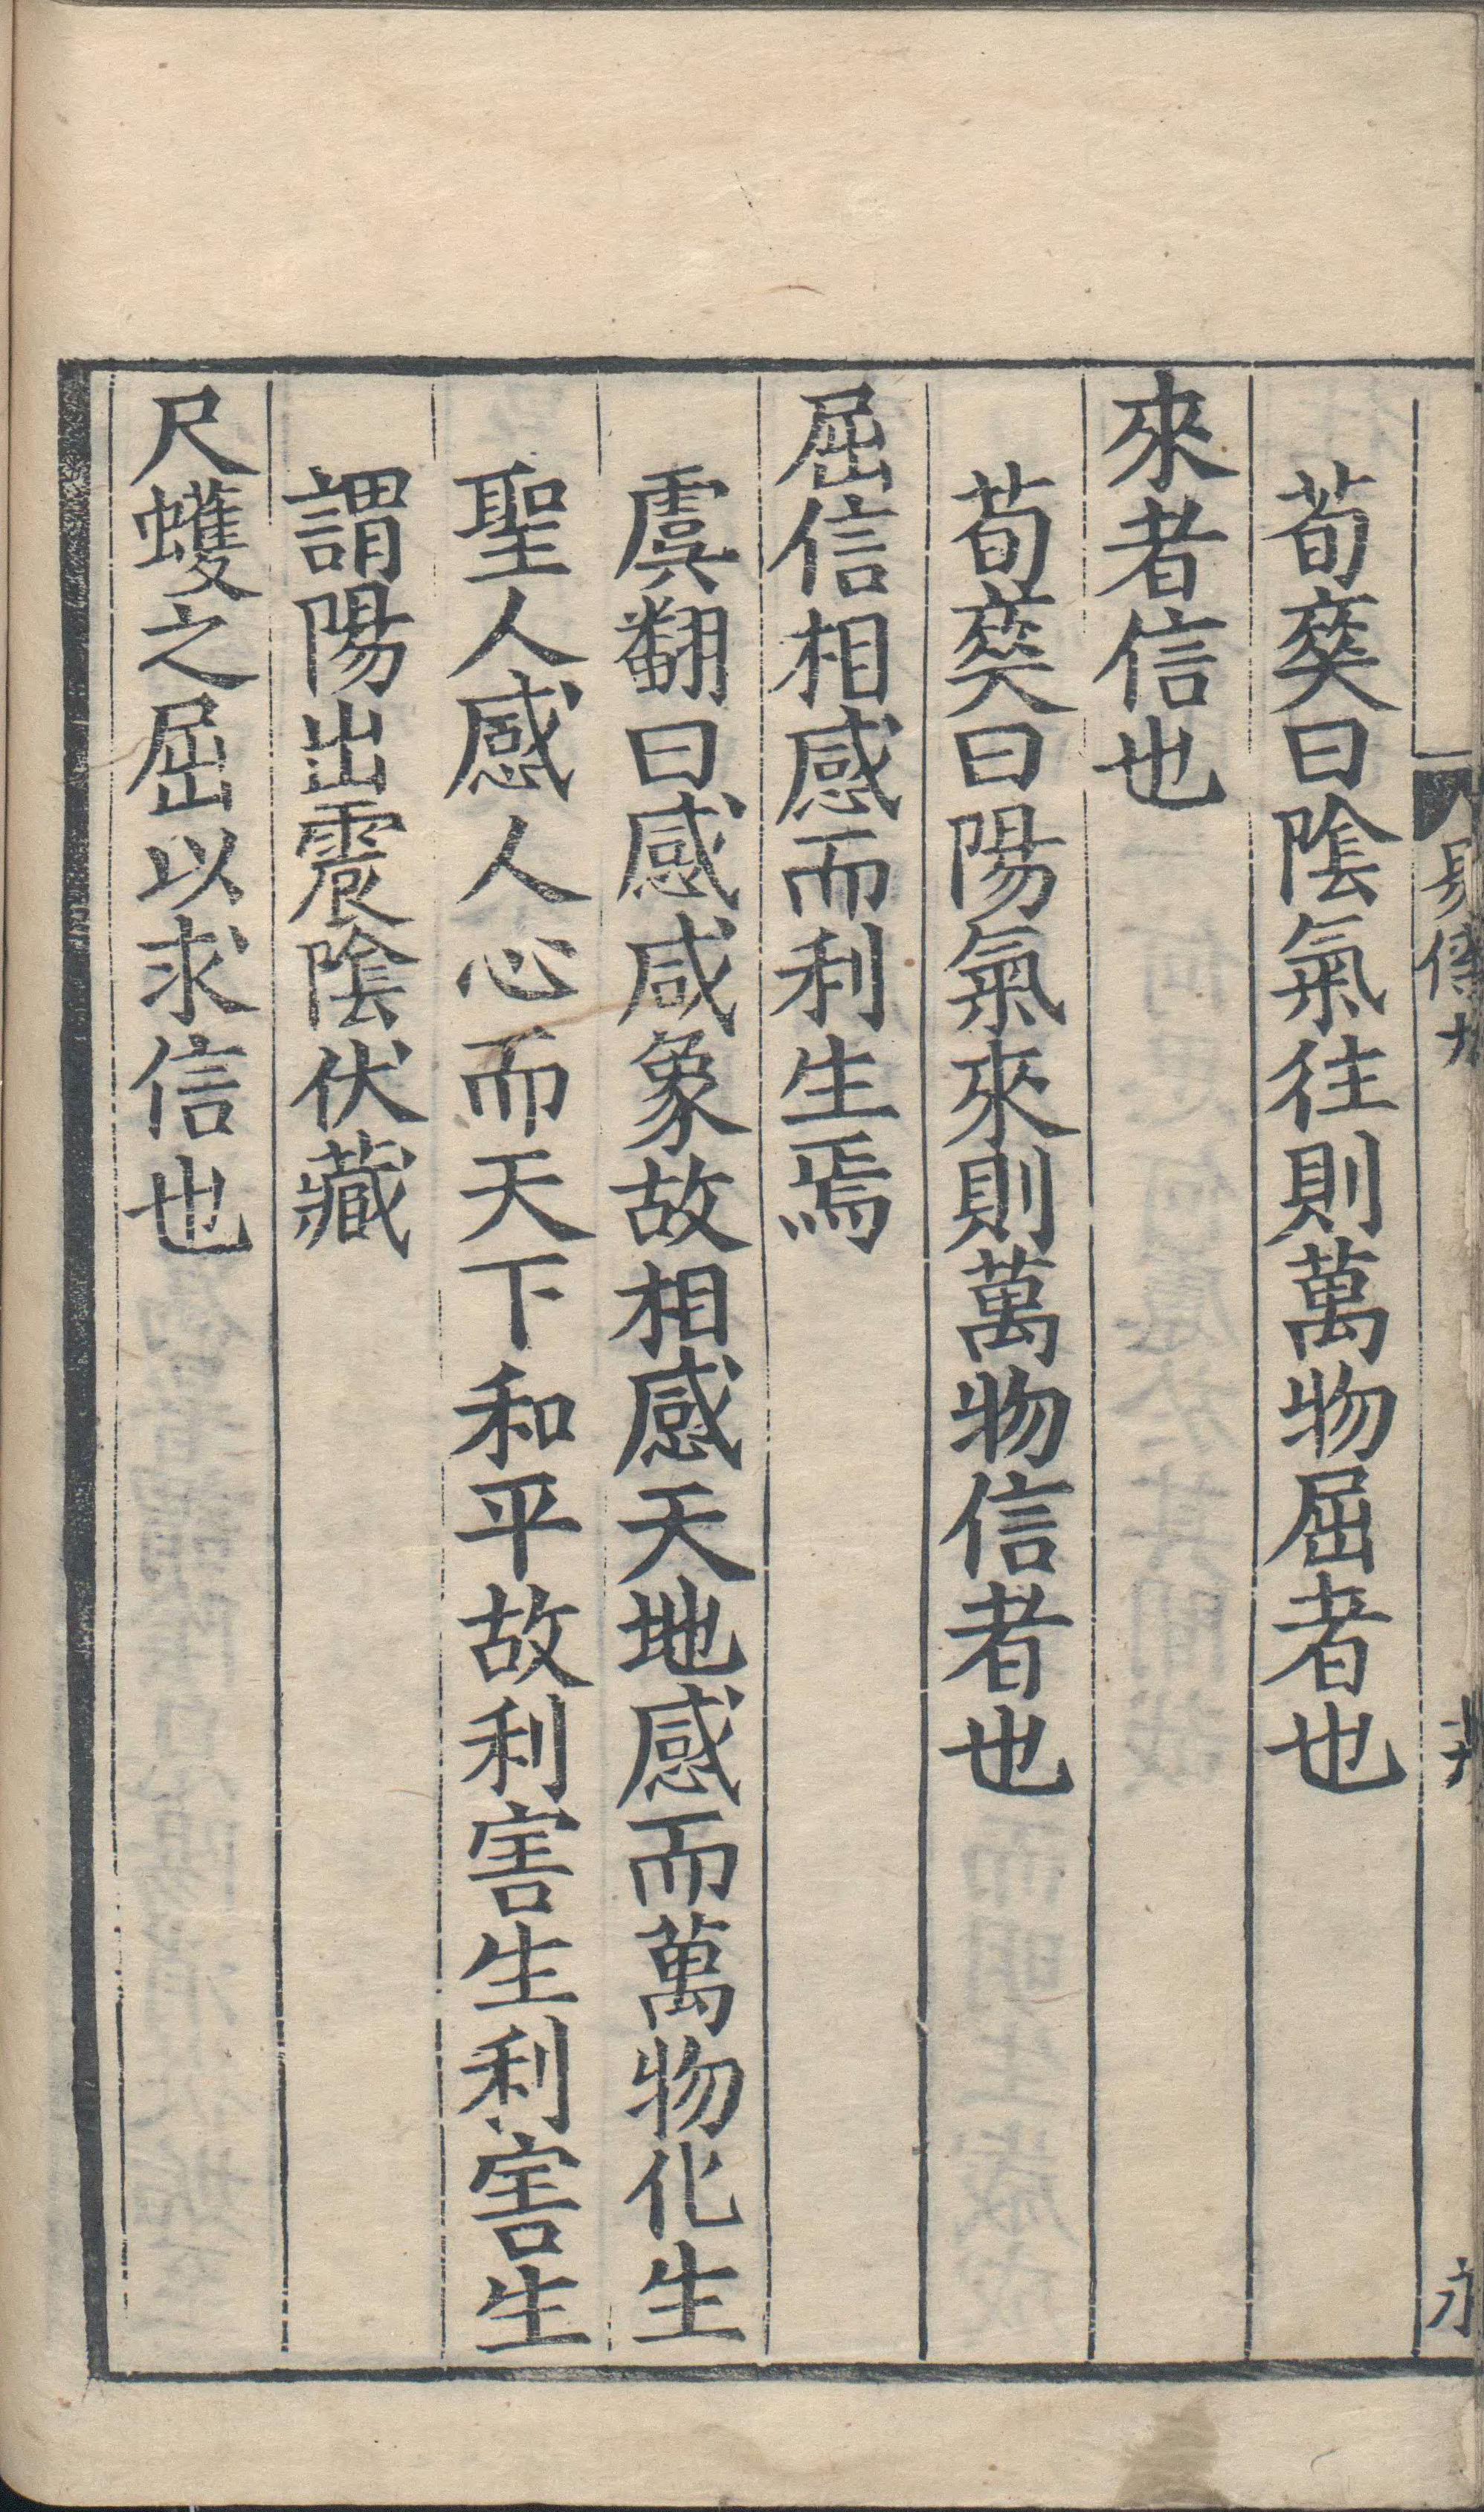 荀爽曰陰氣往則萬物屈者也
來者信也
荀爽曰陽氣來則萬物信者也
屈信相感而利生焉
虞翻曰感咸象故相感天地感而萬物化生
聖人感人心而天下和平故利害生利害生
謂陽出震陰伏藏
尺蠖之屈以求信也